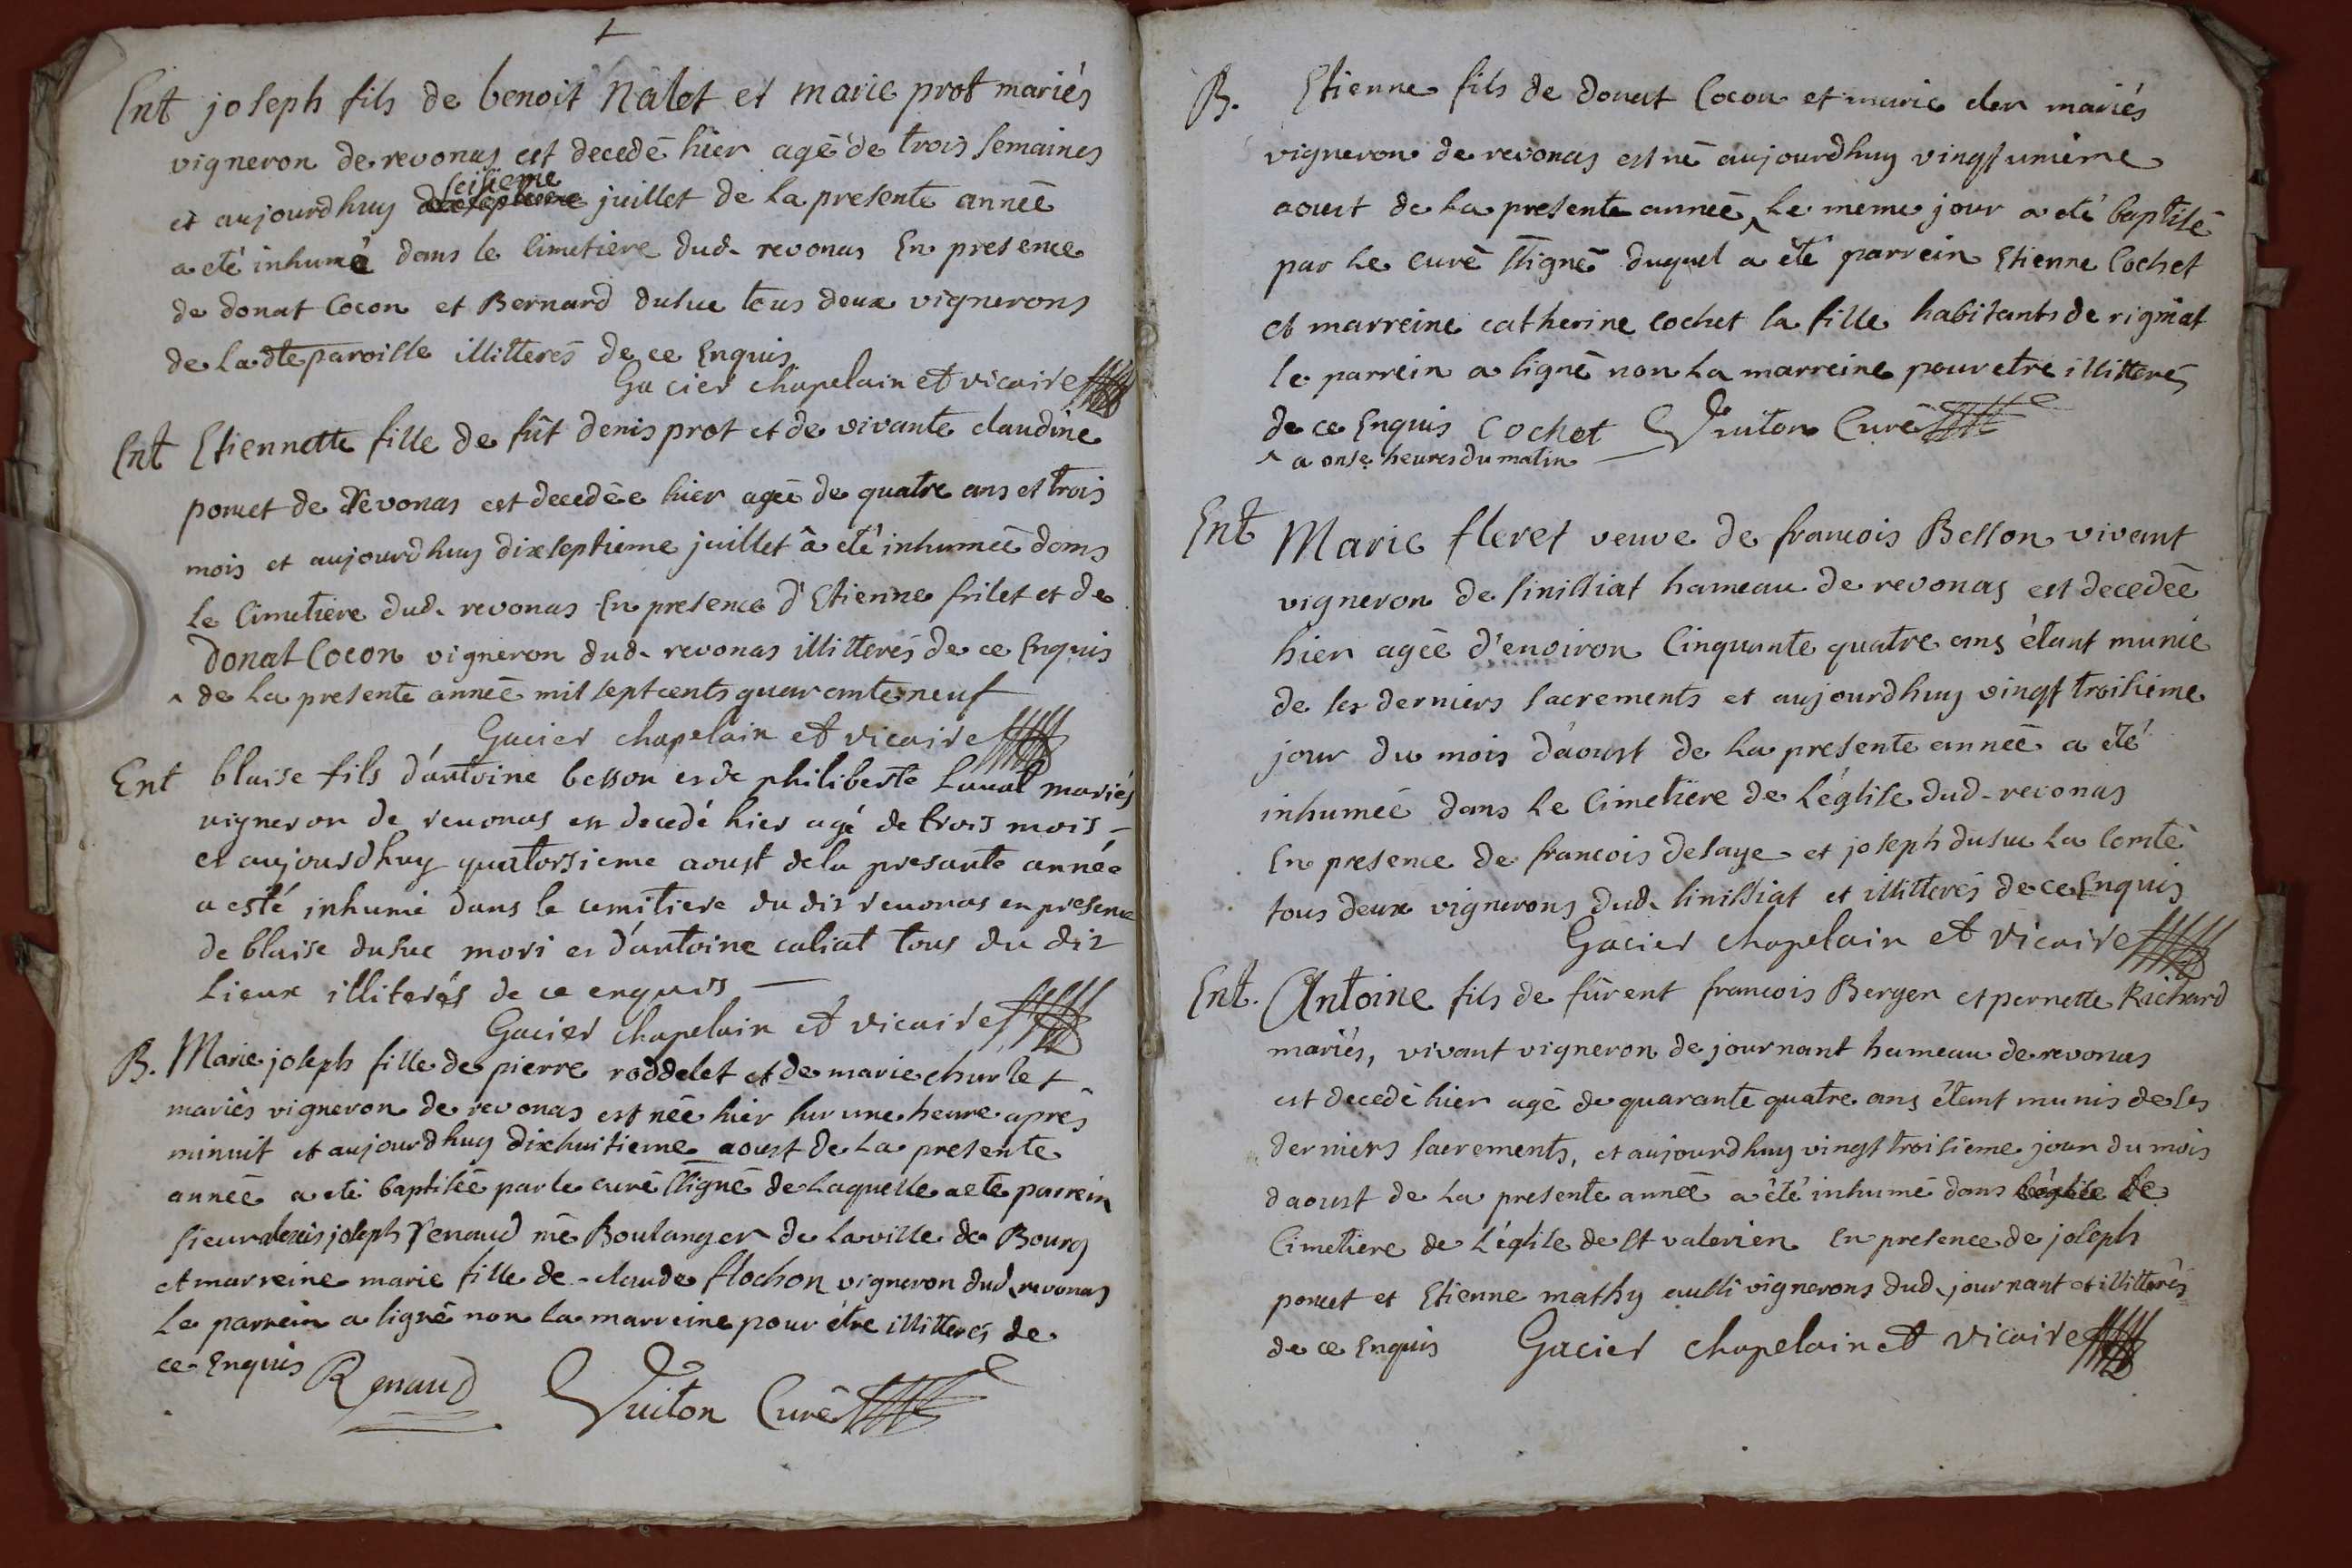 Ent joseph fils de benoit Nalet et marie prot mariés
vigneron de revonas est decedé hier agé de trois semaines
et aujourdhuy seisieme juillet de la presente année
a eté inhumé dans le Cimetiere dud. revonas En presence
de donat Cocon et Bernard dusuc tous deux vignerons
de La dte paroisse illitterés de ce Enquis
Gacier chapelain et vicaire
Ent Etiennette fille de fût denis prot et de vivante claudine
poncet de revonas est decedée hier ageé de quatre ans et trois
mois et aujourdhuy dixseptieme juillet â eté inhumeé dans
le Cimetiere dud. revonas En presence d'Etienne frilet et de
donat Cocon vigneron dud. revonas illitterés de ce Enquis
^ de La presente année mil sept cents quarante neuf
Gacier chapelain et vicaire
Ent blaise fils d'antoine besson et de philiberte Laval mariés
vigneron de revonas est decedé hier agé de trois mois –
et aujourdhuy quatorsieme aoust de la presante année
a esté inhumé dans le cemitiere du dit revonas en presence
de blaise dusuc mori et d'antoine caliat tous du dit
Lieux illiterés de ce enquis —
Gacier chapelain et vicaire
B. Marie joseph fille de pierre roddelet et de marie churlet
mariés vigneron de revonas est née hier sur une heure aprés
minuit et aujourdhuy dixhuitieme aoust de La presente
année a eté baptiseé par le curé ssigné de Laquelle a eté parrein
sieur denis joseph renaud mê Boulanger de La ville de Bourg
et marreine marie fille de claude flochon vigneron dud. revonas
Le parrein a signé non La marreine pour être illitterés de
ce Enquis Renaud Vuiton Curé
B. Etienne fils de donat Cocon et marie der mariés
vigneron de revonas est né aujourdhuy vingt unieme
aoust de La presente année ^ Le meme jour a eté baptisé
par Le curé ssigné duquel a été parrein Etienne Cochet
et marreine catherine cochet sa fille habitants de rignat
le parrein a signé non La marreine pour etre illitterés
de ce Enquis Cochet Vuiton Curé
^ a onse heures du matin
Ent Marie fleret veuve de francois Besson vivant
vigneron de sinissiat hameau de revonas est decedée
hier ageé d'environ Cinquante quatre ans étant munie
de ses derniers sacrements et aujourdhuy vingt troisieme
jour du mois d'aoust de La presente année a eté
inhumeé dans Le Cimetiere de L'église dud. revonas
En presence de francois delaye et joseph dusuc La Comté
tous deux vignerons dud. sinissiat et illitterés de ce Enquis
Gacier chapelain et vicaire
Ent. Antoine fils de fûrent francois Berger et pernette Richard
mariés, vivant vigneron de journant hameau de revonas
est decedé hier agé de quarante quatre ans étant munis de ses
derniers sacrements, et aujourdhuy vingt troisieme jour du mois
daoust de La presente année a été inhumé dans l'église le
Cimetiere de L'église de St valerien En presence de joseph
poncet et Etienne mathy aussi vignerons dud. journant et illitterés
de ce Enquis Gacier chapelain et vicaire